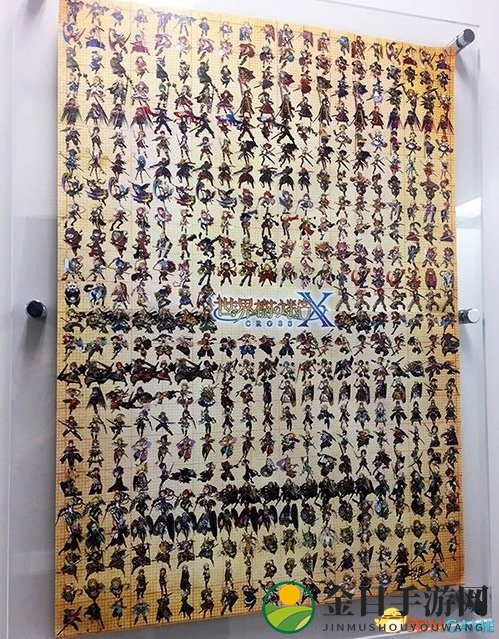 世界樹の迷宮X
CROSS
金日手游网
JINMUSHOUYOUWANG